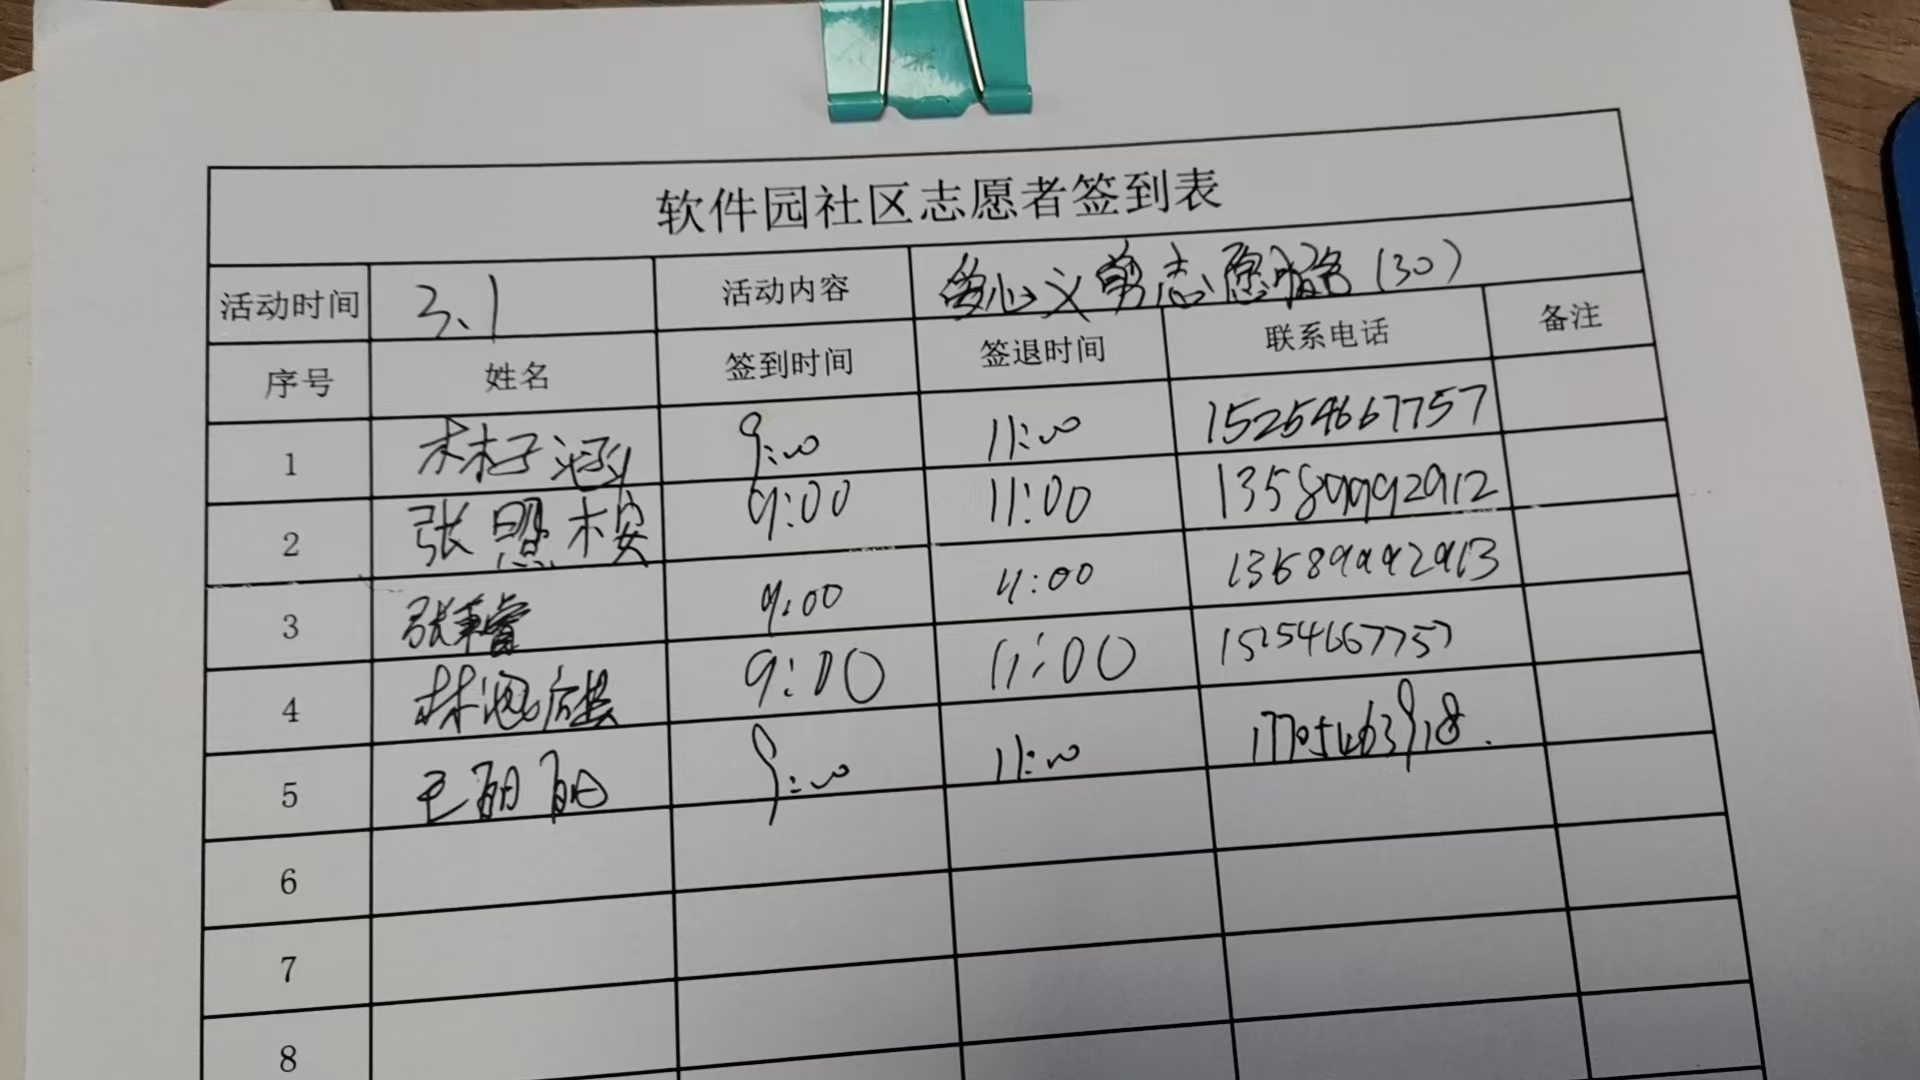 软件园社区志愿者签到表
活动时间 3.1 活动内容 爱心义剪志愿服务(30)
序号 姓名 签到时间 签退时间 联系电话 备注
1 林子涵 9:00 11:00 15254667757
2 张照桉 9:00 11:00 13589992912
3 张秉睿 9:00 11:00 13589992913
4 9:00 11:00
5 王丽丽 9:00 11:00 17705463918.
6
7
8